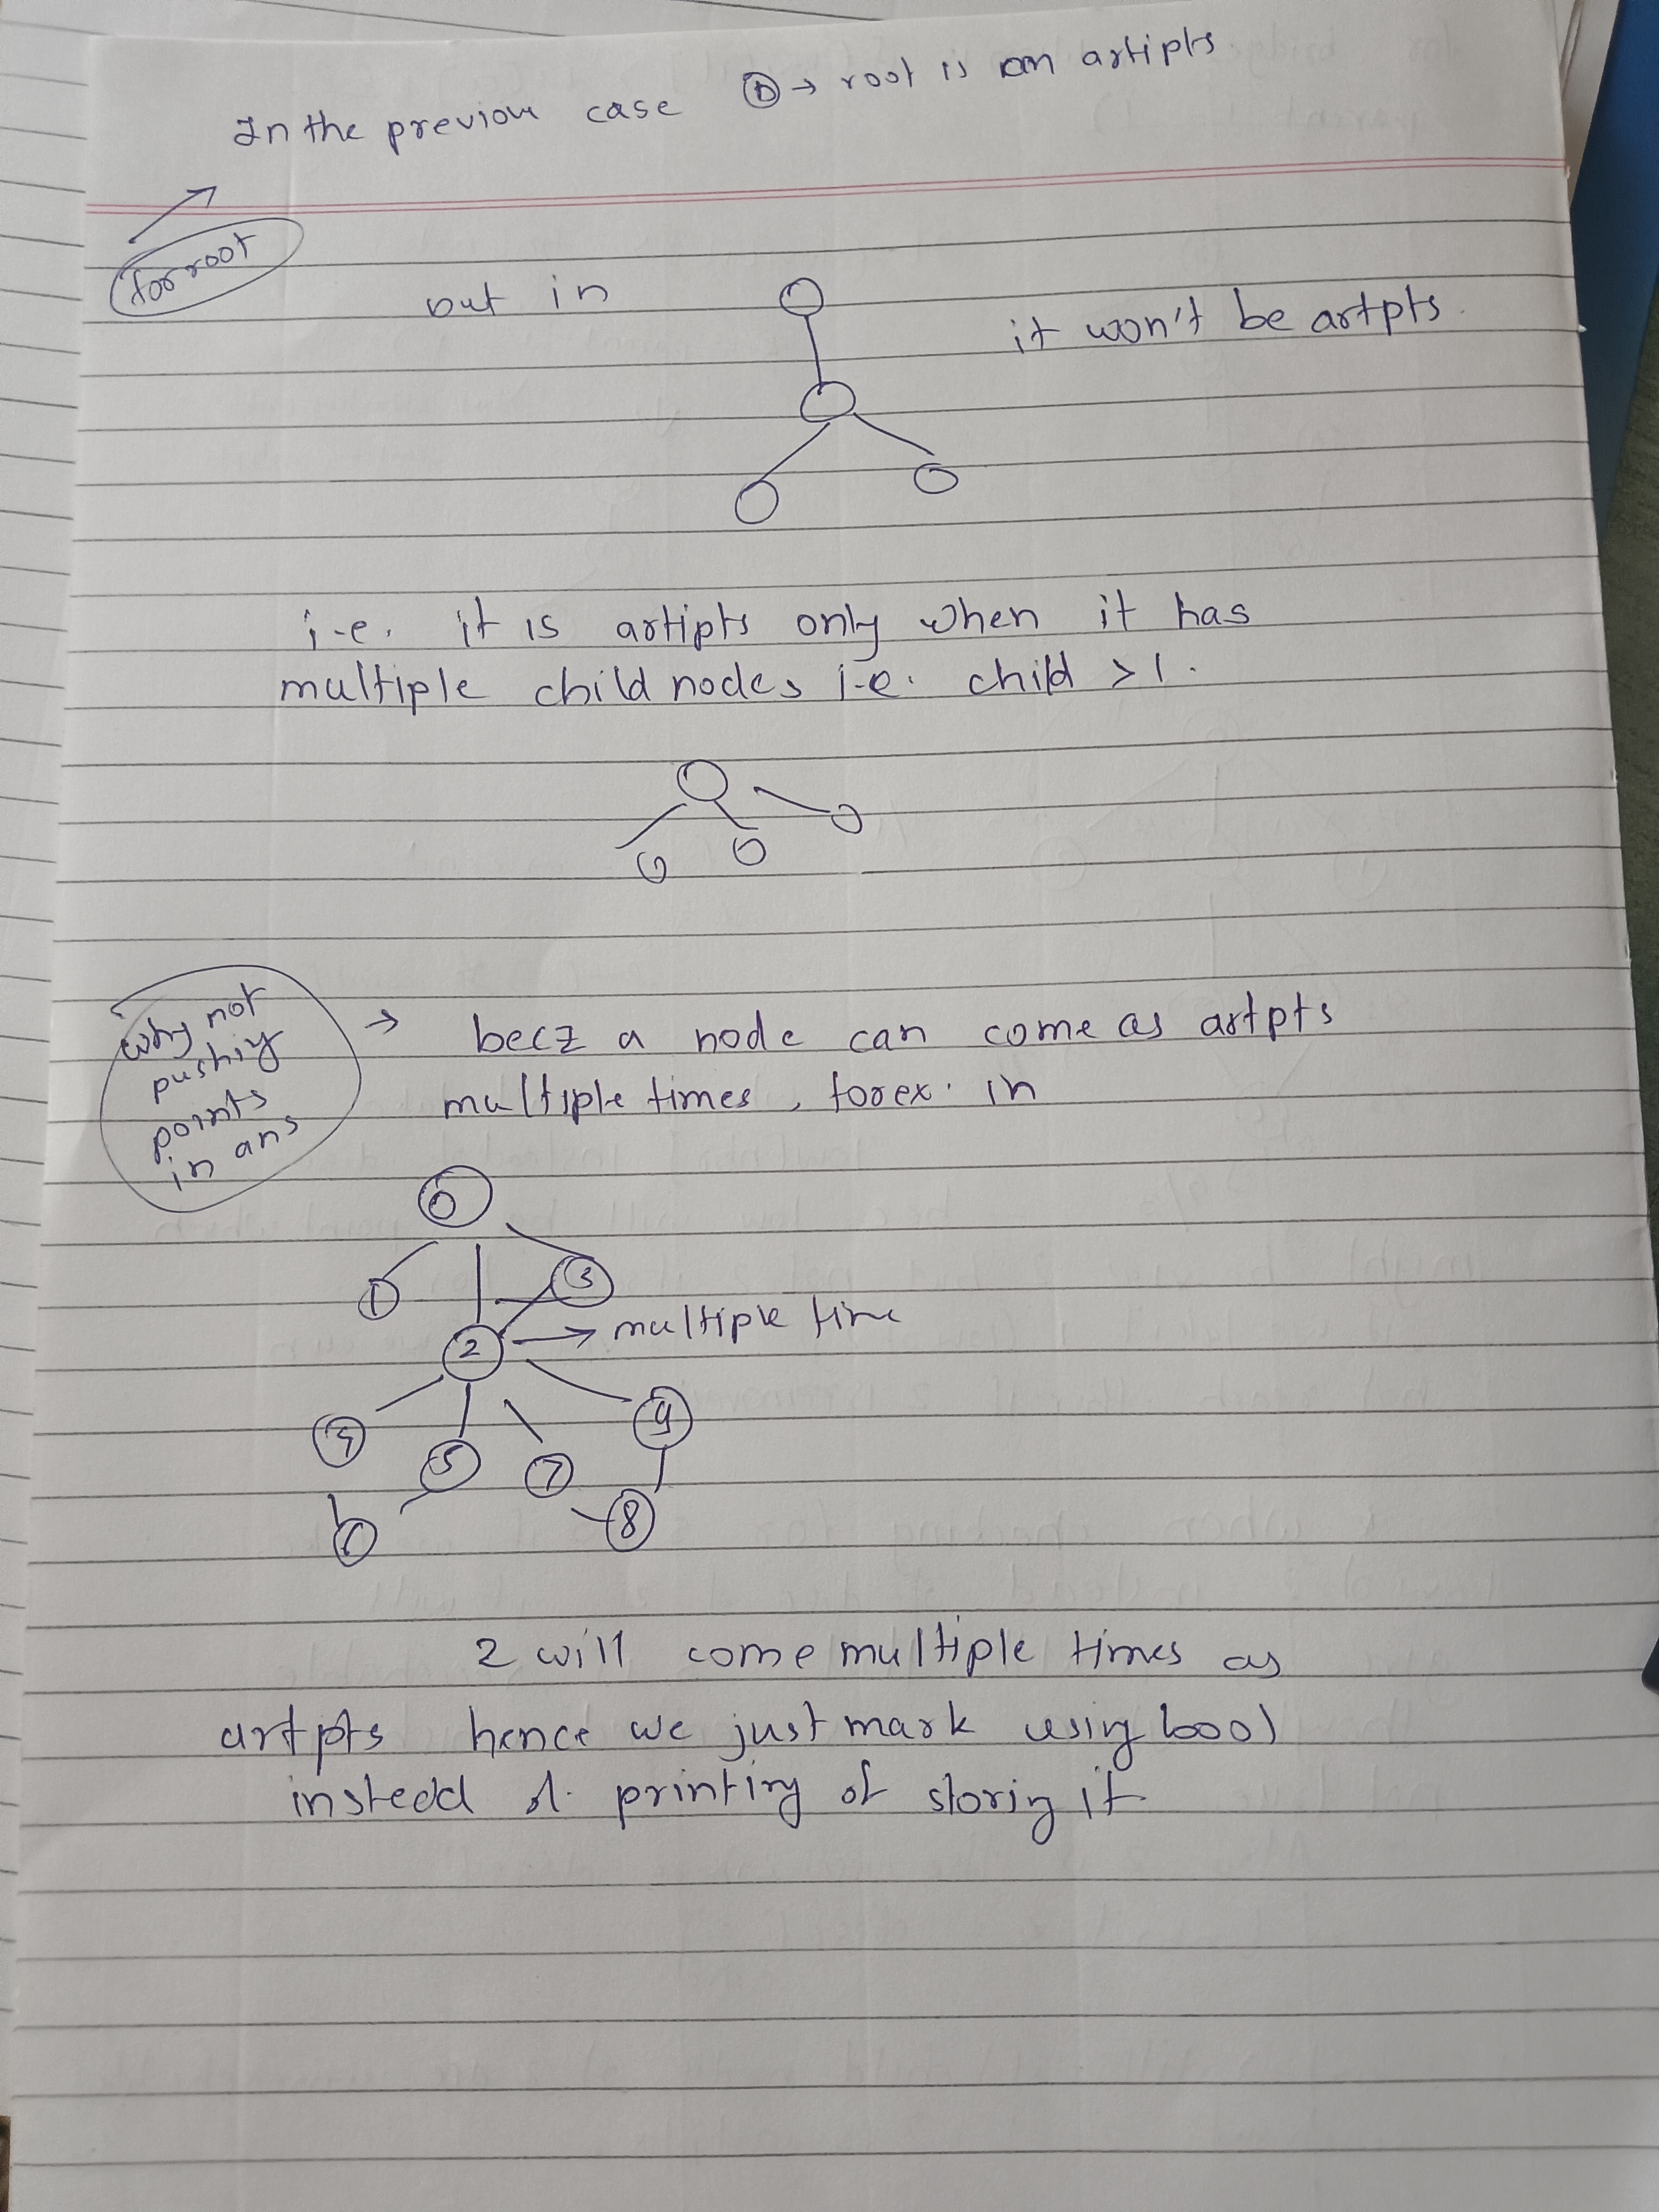 In the previous case ① → root is an artipts
for root
but in
it won't be artpts.
i.e. it is artipts only when it has
multiple child nodes i.e. child > 1.
why not
pushing
points
in ans
→ becz a node can come as artpts
multiple times, for ex. in
0
1
3
2 → multiple time
4
5
7
9
6
8
2 will come multiple times as
artpts hence we just mark using bool
instead of printing of storing it